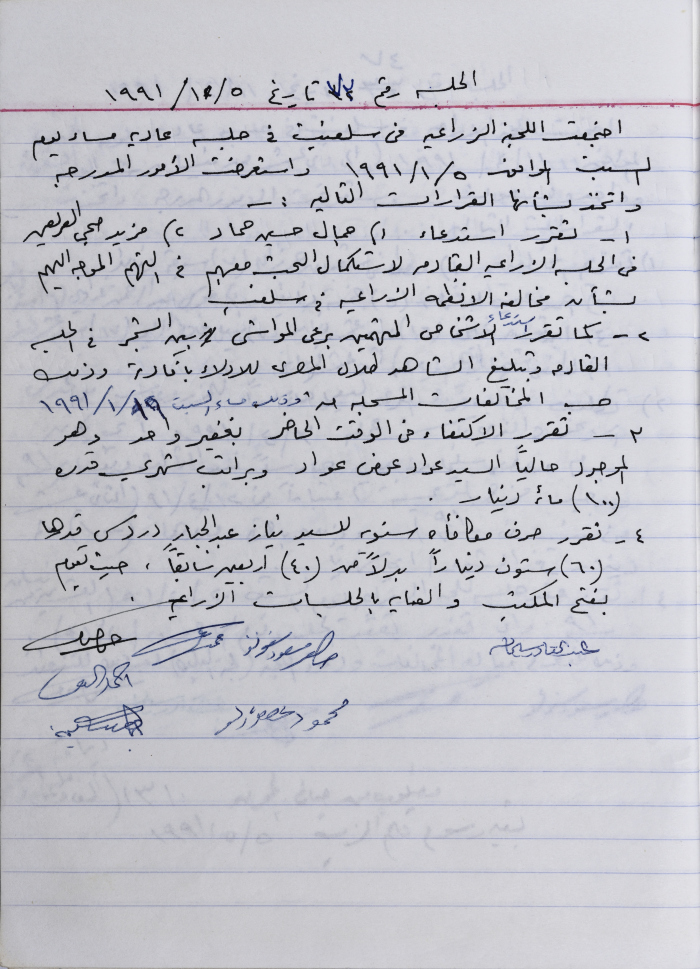 الجلسه رقم ٧٢ تاريخ ١٩٩١/١/٥
اجتمعت اللجنة الزراعيه في سلفيت في جلسه عاديه مساء يوم
السبت الموافق ١٩٩١/١/٥ واستعرضت الأمور المدرجه
واتخذ بشأنها القرارات التاليه : ــ
١ـ تقرر استدعاء ١) جمال حسين حماد ٢) مزيد صبحي
في الجلسه الزراعيه القادمه لاستكمال البحث معهم في التهم الموجه اليهم
بشأن مخالفة الانظمه الزراعيه في سلفيت
٢ـ كما تقرر استدعاء الاشخاص المتهمين برعي المواشي بين الشجر في الجلسه
القادمه وتبليغ الشاهد طلال المصري للادلاء بافادة وذلك
حسب المخالفات المسجله وذلك مساء السبت ١٩٩١/١/١٩
٣ـ تقرر الاكتفاء في الوقت الحاضر بغفير واحد وهو
الموجود حالياً السيد عواد عوض عواد وبراتب شهري قدره
(١٠٠) مائة دينار .
٤ـ تقرر صرف مكافأه سنويه للسيد نياز عبد الجبار دردس قدرها
(٦٠) ستون ديناراً بدلاً من (٤٠) اربعين سابقاً ، حيث يقوم
بفتح المكتب والعنايه بالجلسات الزراعيه .
عبد القادر سليمان
محمود